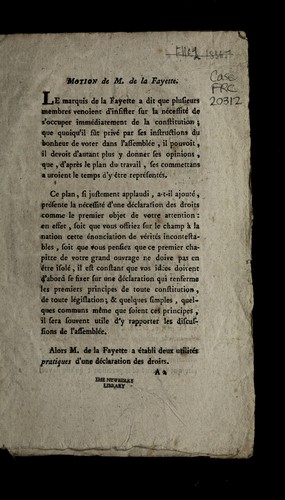 Case
FRC
20312
MOTION de M. de la Fayette.
LE marquis de la Fayette a dit que plusieurs
membres venoient d'insister sur la nécessité de
s'occuper immédiatement de la constitution ;
que quoiqu'il fût privé par ses instructions du
bonheur de voter dans l'assemblée, il pouvoit,
il devoit d'autant plus y donner ses opinions,
que, d'après le plan du travail, ses commettans
auroient le temps d'y être représentés.
Ce plan, si justement applaudi, a-t-il ajouté,
présente la nécessité d'une déclaration des droits
comme le premier objet de votre attention :
en effet, soit que vous offriez sur le champ à la
nation cette énonciation de vérités incontesta-
bles, soit que vous pensiez que ce premier cha-
pitre de votre grand ouvrage ne doive pas en
être isolé, il est constant que vos idées doivent
d'abord se fixer sur une déclaration qui renferme
les premiers principes de toute constitution,
de toute législation ; & quelques simples, quel-
ques communs même que soient ces principes,
il sera souvent utile d'y rapporter les discus-
sions de l'assemblée.
Alors M. de la Fayette a établi deux utilités
pratiques d'une déclaration des droits.
A a
THE NEWBERRY
LIBRARY